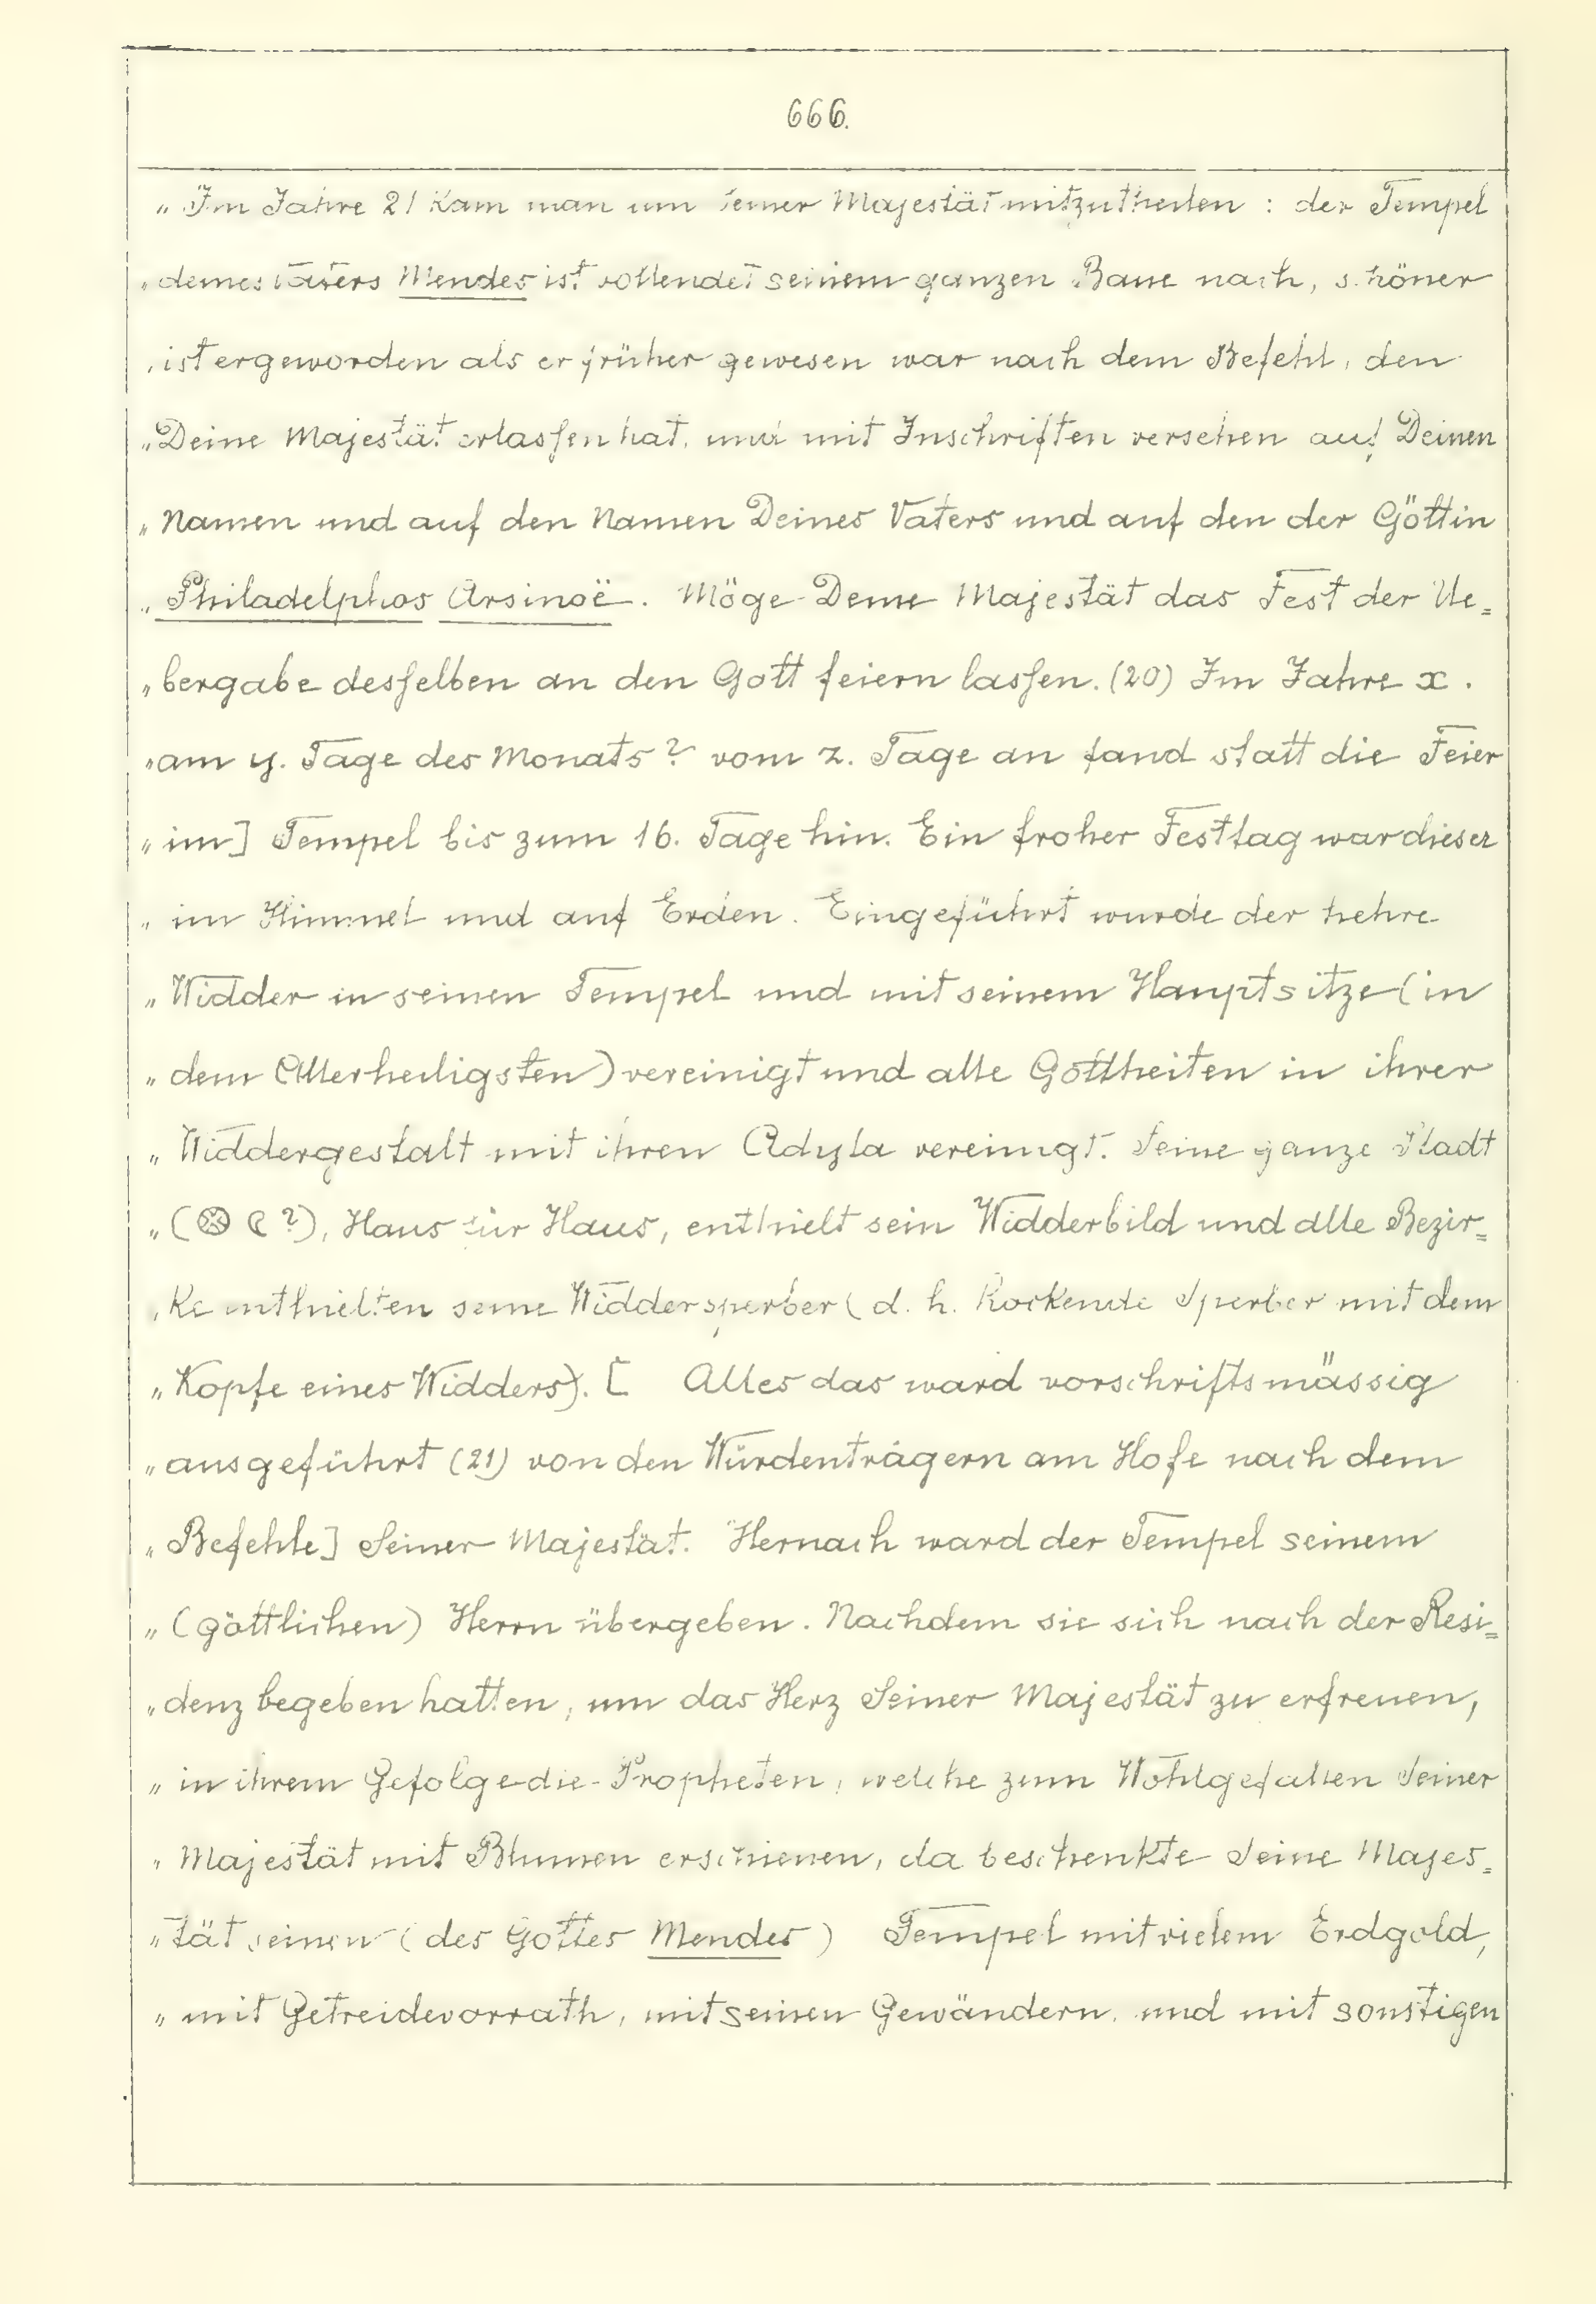 666.
„ Im Jahre 21 kam man um seiner Majestät mitzutheilen : der Tempel
„ deines Vaters Mendes ist vollendet seinem ganzen Baue nach, schöner
„ ist er geworden als er früher gewesen war nach dem Befehl, den
„ Deine Majestät erlassen hat, und mit Inschriften versehen auf Deinen
„ Namen und auf den Namen Deines Vaters und auf den der Göttin
„ Philadelphos Arsinoë. Möge Deine Majestät das Fest der Ue=
„ bergabe desselben an den Gott feiern lassen. (20) Im Jahre x.
„ am y. Tage des Monats? vom z. Tage an fand statt die Feier
„ im] Tempel bis zum 16. Tage hin. Ein froher Festtag war dieser
„ im Himmel und auf Erden. Eingeführt wurde der hehre
„ Widder in seinen Tempel und mit seinem Hauptsitze (in
„ dem Allerheiligsten) vereinigt und alle Gottheiten in ihrer
„ Widdergestalt mit ihren Adyta vereinigt. Seine ganze Stadt
„ (⊗ ?), Haus für Haus, enthielt sein Widderbild und alle Bezir=
„ ke enthielten seine Widdersperber (d. h. hockende Sperber mit dem
„ Kopfe eines Widders). [ Alles das ward vorschriftsmässig
„ ausgeführt (21) von den Würdenträgern am Hofe nach dem
„ Befehle] Seiner Majestät. Hernach ward der Tempel seinem
„ (göttlichen) Herrn übergeben. Nachdem sie sich nach der Resi=
„ denz begeben hatten, um das Herz Seiner Majestät zu erfreuen,
„ in ihrem Gefolge die Propheten, welche zum Wohlgefallen Seiner
„ Majestät mit Blumen erschienen, da beschenkte Seine Majes=
„ tät seinen (des Gottes Mendes) Tempel mit vielem Erdgold,
„ mit Getreidevorrath, mit seinen Gewändern, und mit sonstigen